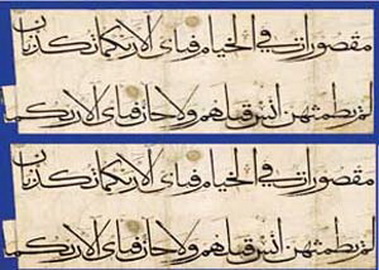 مقصورات في الخيام فباى الا ربكما تكذبان
لم يطمثهن انس قبلهم ولا جان فباى الا ربكما
مقصورات في الخيام فباى الا ربكما تكذبان
لم يطمثهن انس قبلهم ولا جان فباى الا ربكما